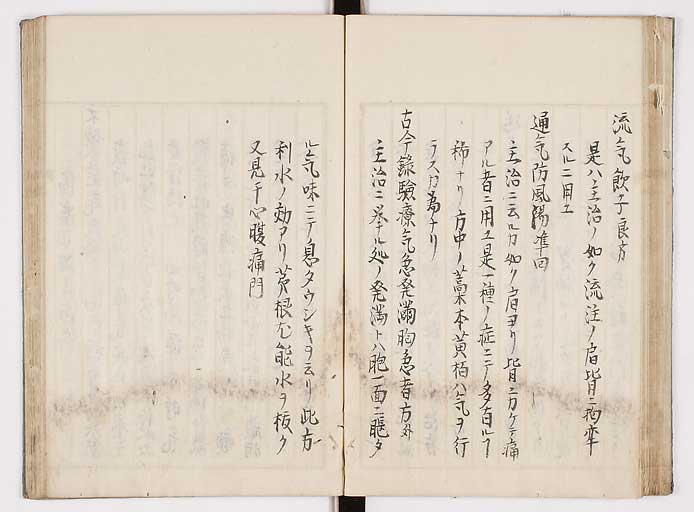 流気飲子良方
是ハ主治ノ如ク流注ノ肩背ニ拘牽
スルニ用ユ
通気防風湯準四
主治ニ云ル如ク肩ヨリ背ニカケテ痛
アル者ニ用ユ是一種ノ症ニテ多有ルヿ
稀ナリ方中ノ藁本黄柏ハ気ヲ行
ラス力為ナリ
古今録験療気急発満胸急者方外
主治ニ挙ル処ノ発満トハ胞一面ニ脹タ
ル気味ニテ息タウシキヲ云リ此方
利水ノ効アリ茅根尤能水ヲ板ク
又見于心腹痛門